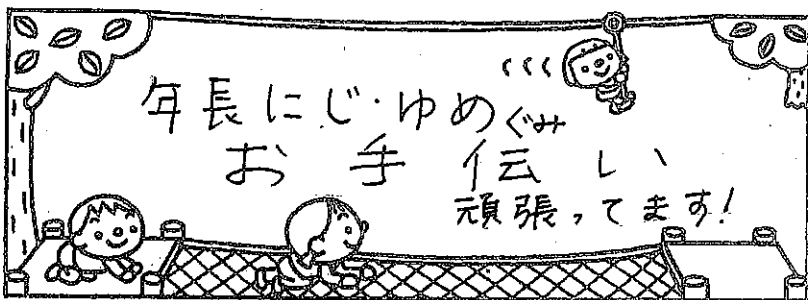 年長にじ・ゆめぐみ
お手伝い
頑張ってます!